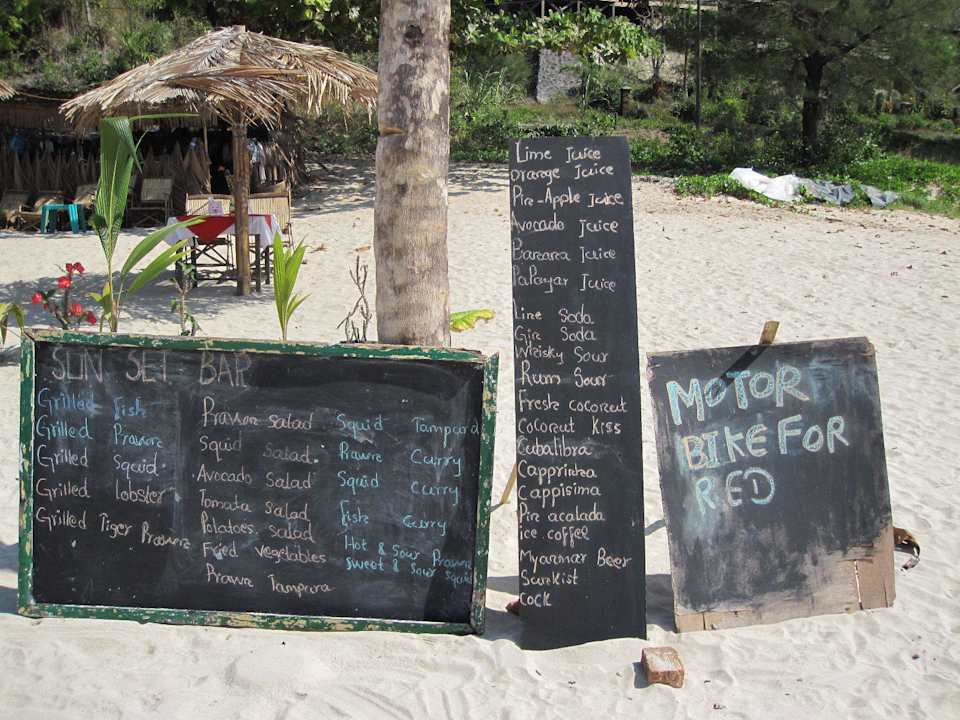 SUN SET BAR
Grilled fish
Grilled Prawn
Grilled squid
Grilled lobster
Grilled Tiger Prawn
Prawn salad
Squid Salad.
Avocado Salad
Tomata Salad
Potatoes salad
Fried vegetables
Prawn Tampura
Squid Tampura
Prawn Curry
Squid Curry
Fish Curry
Hot & Sour Prawn
sweet & Sour Squid
Lime Juice
orange Juice
Pine-Apple Juice
Avocado Juice
Banana Juice
Papayar Juice
Line Soda
Gin Soda
Whisky Sour
Rum Sour
Fresh coconut
Coconut Kiss
Cubalibra
Capprinha
Cappisima
Pin acalada
ice coffel
Myanmar Beer
Sunkist
COCK
MOTOR
BIKE FOR
RED